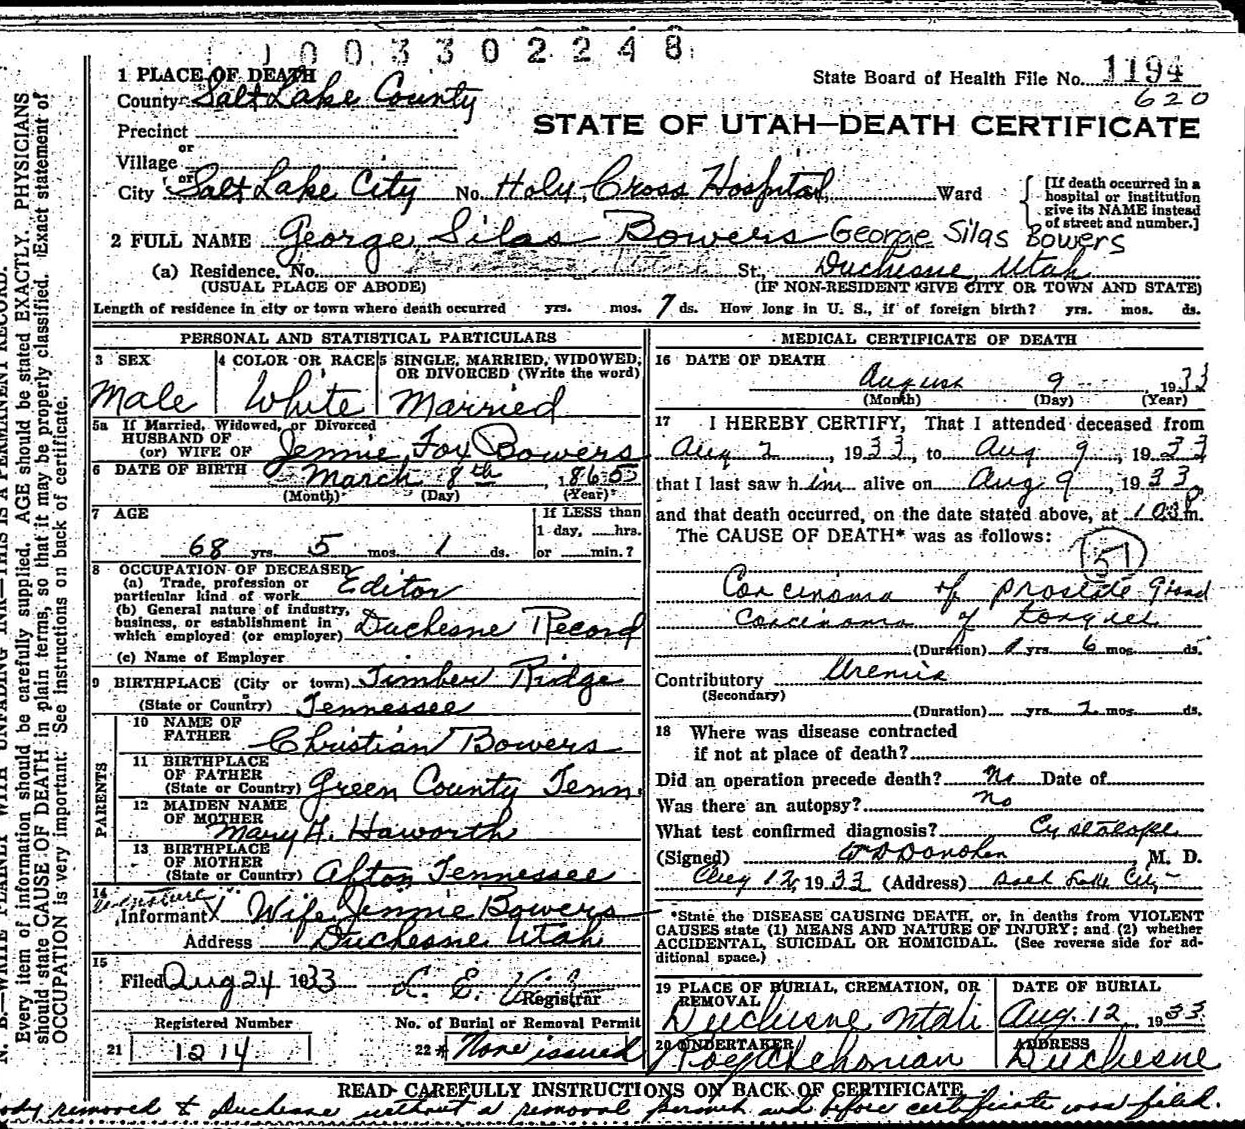 1 0 0 3 3 0 2 2 4 8
1 PLACE OF DEATH
State Board of Health File No. 1194
County Salt Lake County
620
STATE OF UTAH—DEATH CERTIFICATE
Precinct
or
Village
or
City Salt Lake City No. Holy Cross Hospital Ward
[If death occurred in a hospital or institution give its NAME instead of street and number.]
2 FULL NAME George Silas Bowers George Silas Bowers
(a) Residence. No. St., Duchesne, Utah
(USUAL PLACE OF ABODE) (IF NON-RESIDENT GIVE CITY OR TOWN AND STATE)
Length of residence in city or town where death occurred yrs. mos. 7 ds. How long in U. S., if of foreign birth? yrs. mos. ds.
PERSONAL AND STATISTICAL PARTICULARS
3 SEX 4 COLOR OR RACE 5 SINGLE, MARRIED, WIDOWED, OR DIVORCED (Write the word)
Male White Married
5a If Married, Widowed, or Divorced
HUSBAND OF
(or) WIFE OF Jennie Fox Bowers
6 DATE OF BIRTH March 8th, 1865
(Month) (Day) (Year)
7 AGE
If LESS than
1 day, hrs.
68 yrs. 5 mos. 1 ds. or min.?
8 OCCUPATION OF DECEASED
(a) Trade, profession or
particular kind of work Editor
(b) General nature of industry,
business, or establishment in
which employed (or employer) Duchesne Record
(c) Name of Employer
9 BIRTHPLACE (City or town) Timber Ridge
(State or Country) Tennessee
PARENTS
10 NAME OF
FATHER Christian Bowers
11 BIRTHPLACE
OF FATHER
(State or Country) Green County Tenn.
12 MAIDEN NAME
OF MOTHER
Mary F. Haworth
13 BIRTHPLACE
OF MOTHER
(State or Country) Afton Tennessee
14 Signature
Informant X Wife Jennie Bowers
Address Duchesne Utah
15
Filed Aug 24 1933 L. E.
Registrar
Registered Number No. of Burial or Removal Permit
21 1214 22 * None issued
MEDICAL CERTIFICATE OF DEATH
16 DATE OF DEATH
August 9 1933
(Month) (Day) (Year)
17 I HEREBY CERTIFY, That I attended deceased from
Aug 2, 1933, to Aug 9, 1933
that I last saw him alive on Aug 9, 1933
and that death occurred, on the date stated above, at m.
The CAUSE OF DEATH* was as follows:
51
Carcinoma of prostate Gland
Carcinoma of tongue
(Duration) yrs. 6 mos. ds.
Contributory Uremia
(Secondary)
(Duration) yrs. 2 mos. ds.
18 Where was disease contracted
if not at place of death?
Did an operation precede death? No Date of
Was there an autopsy? no
What test confirmed diagnosis? Cystoscope
(Signed) , M. D.
Aug 12, 1933 (Address) Salt Lake City
*State the DISEASE CAUSING DEATH, or, in deaths from VIOLENT
CAUSES state (1) MEANS AND NATURE OF INJURY; and (2) whether
ACCIDENTAL, SUICIDAL OR HOMICIDAL. (See reverse side for ad-
ditional space.)
19 PLACE OF BURIAL, CREMATION, OR REMOVAL DATE OF BURIAL
Duchesne Utah Aug. 12, 1933
20 UNDERTAKER ADDRESS
Roy Duchesne
READ CAREFULLY INSTRUCTIONS ON BACK OF CERTIFICATE
body removed to Duchesne without a removal permit and before certificate was filed.
N. B.—WRITE PLAINLY WITH UNFADING INK—THIS IS A PERMANENT RECORD.
Every item of information should be carefully supplied. AGE should be stated EXACTLY. PHYSICIANS
should state CAUSE OF DEATH in plain terms, so that it may be properly classified. Exact statement of
OCCUPATION is very important. See Instructions on back of certificate.